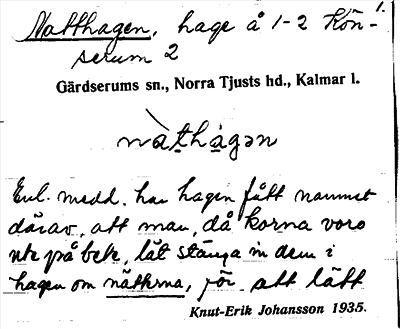 1.
Natthagen, hage å 1-2 Kön-
serum 2
Gärdserums sn., Norra Tjusts hd., Kalmar l.
nàthàgən
Enl. medd. har hagen fått namnet
därav, att man, då korna voro
ute på bete, lät stänga in dem i
hagen om nätterna, för att lätt
Knut-Erik Johansson 1935.